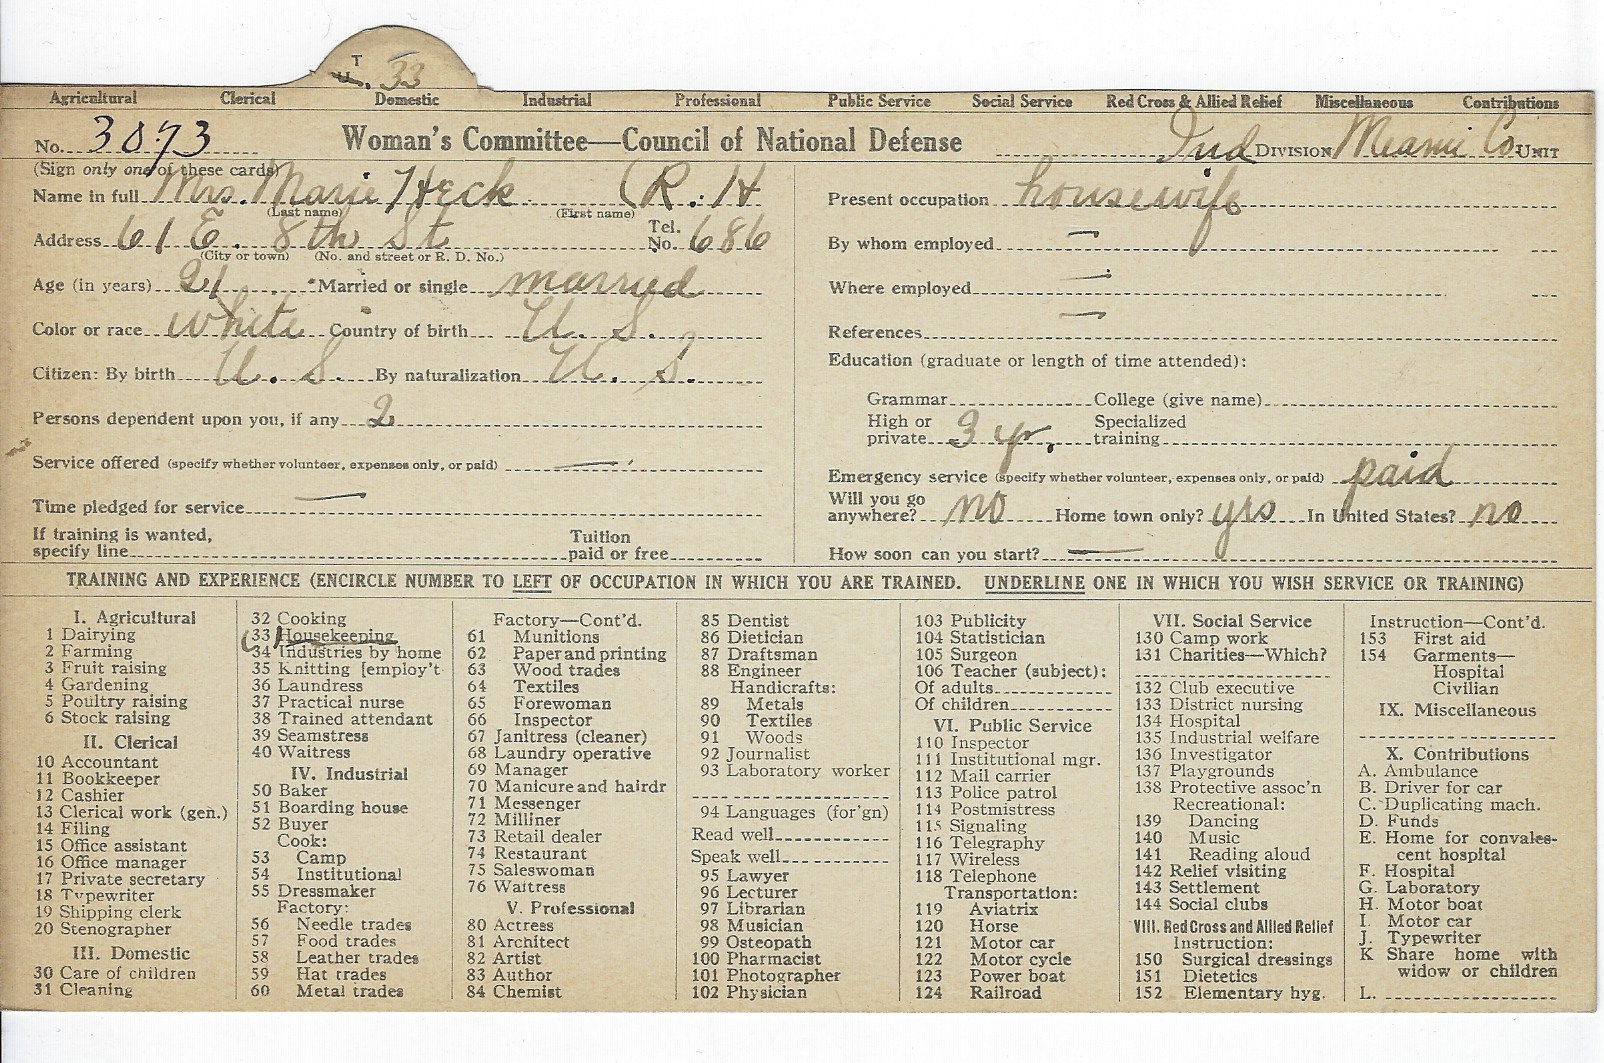 T
U. 33
Agricultural Clerical Domestic Industrial Professional Public Service Social Service Red Cross & Allied Relief Miscellaneous Contributions
No. 3073 Woman's Committee—Council of National Defense Ind DIVISION Miami Co. UNIT
(Sign only one of these cards)
Name in full Mrs. Marie Heck (R. H
(Last name) (First name)
Address 61 E. 8th St Tel. No. 686
(City or town) (No. and street or R. D. No.)
Age (in years) 21 Married or single married
Color or race white Country of birth U. S.
Citizen: By birth U. S. By naturalization U. S.
Persons dependent upon you, if any 2
Service offered (specify whether volunteer, expenses only, or paid) —
Time pledged for service —
If training is wanted,
specify line Tuition paid or free
Present occupation housewife
By whom employed —
Where employed —
References —
Education (graduate or length of time attended):
Grammar College (give name)
High or private 3 yr. Specialized training
Emergency service (specify whether volunteer, expenses only, or paid) paid
Will you go anywhere? no Home town only? yes In United States? no
How soon can you start? —
TRAINING AND EXPERIENCE (ENCIRCLE NUMBER TO LEFT OF OCCUPATION IN WHICH YOU ARE TRAINED. UNDERLINE ONE IN WHICH YOU WISH SERVICE OR TRAINING)
I. Agricultural
1 Dairying
2 Farming
3 Fruit raising
4 Gardening
5 Poultry raising
6 Stock raising
II. Clerical
10 Accountant
11 Bookkeeper
12 Cashier
13 Clerical work (gen.)
14 Filing
15 Office assistant
16 Office manager
17 Private secretary
18 Typewriter
19 Shipping clerk
20 Stenographer
III. Domestic
30 Care of children
31 Cleaning
32 Cooking
33 Housekeeping
34 Industries by home
35 Knitting [employ't
36 Laundress
37 Practical nurse
38 Trained attendant
39 Seamstress
40 Waitress
IV. Industrial
50 Baker
51 Boarding house
52 Buyer
Cook:
53 Camp
54 Institutional
55 Dressmaker
Factory:
56 Needle trades
57 Food trades
58 Leather trades
59 Hat trades
60 Metal trades
Factory—Cont'd.
61 Munitions
62 Paper and printing
63 Wood trades
64 Textiles
65 Forewoman
66 Inspector
67 Janitress (cleaner)
68 Laundry operative
69 Manager
70 Manicure and hairdr
71 Messenger
72 Milliner
73 Retail dealer
74 Restaurant
75 Saleswoman
76 Waitress
V. Professional
80 Actress
81 Architect
82 Artist
83 Author
84 Chemist
85 Dentist
86 Dietician
87 Draftsman
88 Engineer
Handicrafts:
89 Metals
90 Textiles
91 Woods
92 Journalist
93 Laboratory worker
94 Languages (for'gn)
Read well
Speak well
95 Lawyer
96 Lecturer
97 Librarian
98 Musician
99 Osteopath
100 Pharmacist
101 Photographer
102 Physician
103 Publicity
104 Statistician
105 Surgeon
106 Teacher (subject):
Of adults
Of children
VI. Public Service
110 Inspector
111 Institutional mgr.
112 Mail carrier
113 Police patrol
114 Postmistress
115 Signaling
116 Telegraphy
117 Wireless
118 Telephone
Transportation:
119 Aviatrix
120 Horse
121 Motor car
122 Motor cycle
123 Power boat
124 Railroad
VII. Social Service
130 Camp work
131 Charities—Which?
132 Club executive
133 District nursing
134 Hospital
135 Industrial welfare
136 Investigator
137 Playgrounds
138 Protective assoc'n
Recreational:
139 Dancing
140 Music
141 Reading aloud
142 Relief visiting
143 Settlement
144 Social clubs
VIII. Red Cross and Allied Relief
Instruction:
150 Surgical dressings
151 Dietetics
152 Elementary hyg.
Instruction—Cont'd.
153 First aid
154 Garments—
Hospital
Civilian
IX. Miscellaneous
X. Contributions
A. Ambulance
B. Driver for car
C. Duplicating mach.
D. Funds
E. Home for convales-
cent hospital
F. Hospital
G. Laboratory
H. Motor boat
I. Motor car
J. Typewriter
K Share home with
widow or children
L.